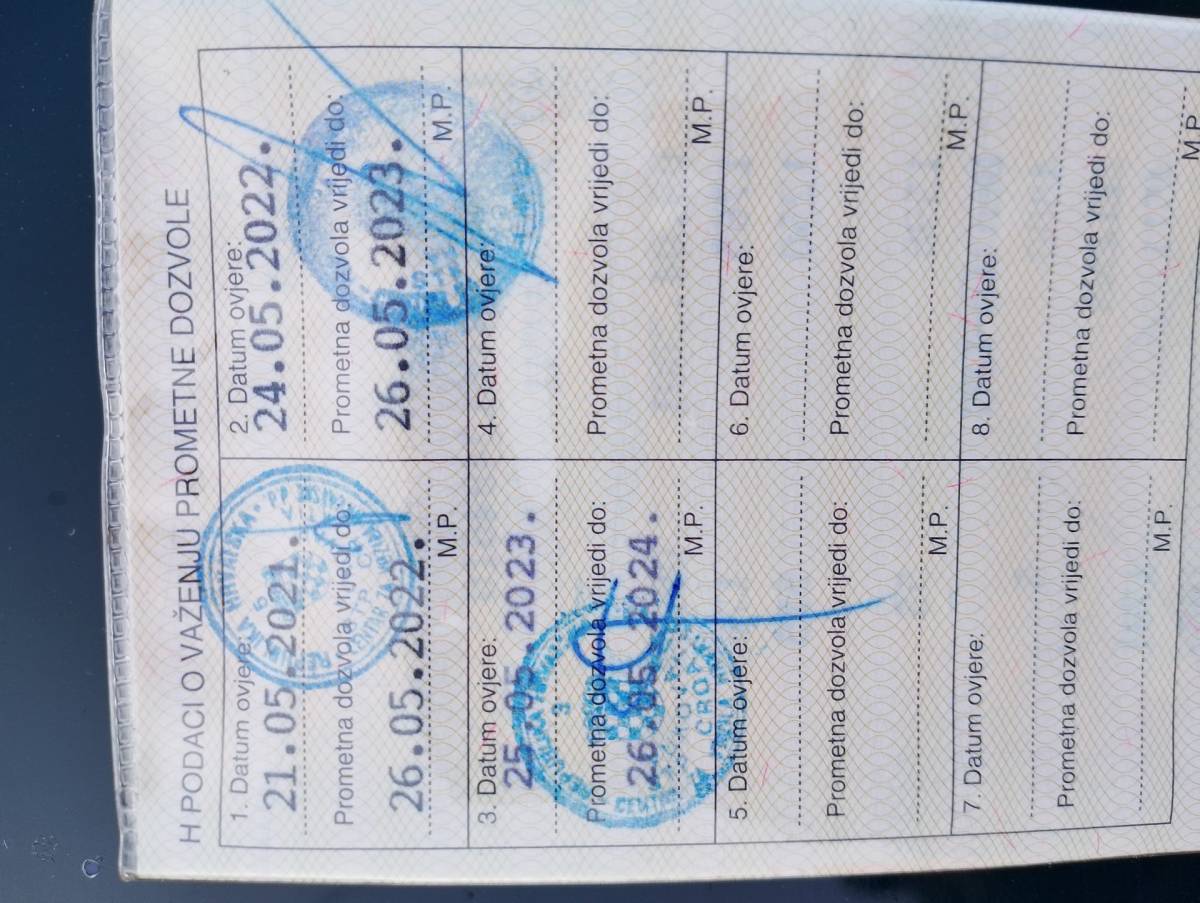 H PODACI O VAŽENJU PROMETNE DOZVOLE
1. Datum ovjere:
21.05.2021.
Prometna dozvola vrijedi do:
26.05.2022.
M.P.
2. Datum ovjere:
24.05.2022.
Prometna dozvola vrijedi do:
26.05.2023.
M.P.
3. Datum ovjere:
25.05.2023.
Prometna dozvola vrijedi do:
26.05.2024.
M.P.
4. Datum ovjere:
Prometna dozvola vrijedi do:
M.P.
5. Datum ovjere:
Prometna dozvola vrijedi do:
M.P.
6. Datum ovjere:
Prometna dozvola vrijedi do:
M.P.
7. Datum ovjere:
Prometna dozvola vrijedi do:
M.P.
8. Datum ovjere:
Prometna dozvola vrijedi do:
M.P.